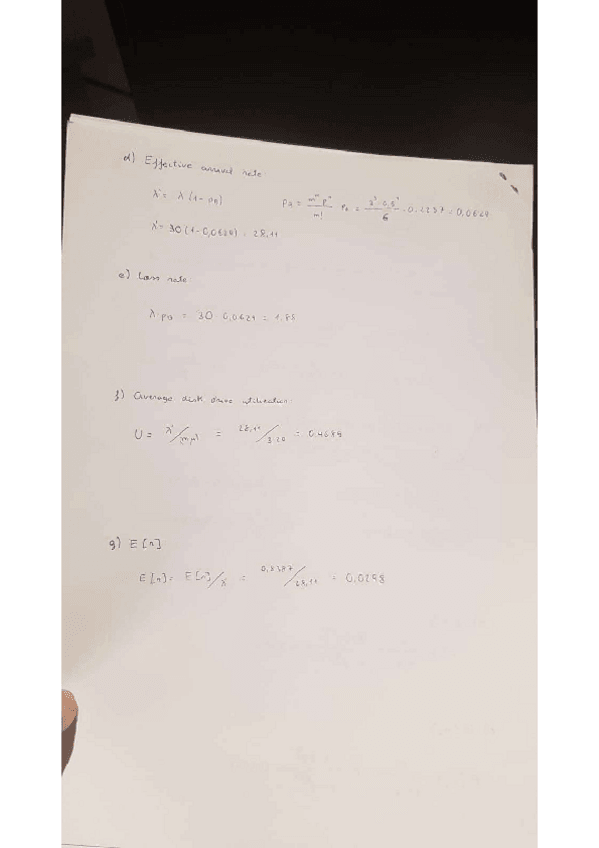 d) Effective arrival rate:
λ' = λ (1 - PB) PB = m^m ρ^m / m! P0 = 3^3 · 0,5^3 / 6 · 0,2237 = 0,0629
λ' = 30 (1 - 0,0629) = 28,11
e) Loss rate
λ PB = 30 · 0,0629 = 1.88
f) Average disk drive utilisation:
U = λ' / mμ = 28,11 / 3·20 = 0.4684
g) E[n]
E[n] = E[n] / λ = 0,8387 / 28,11 = 0,0298